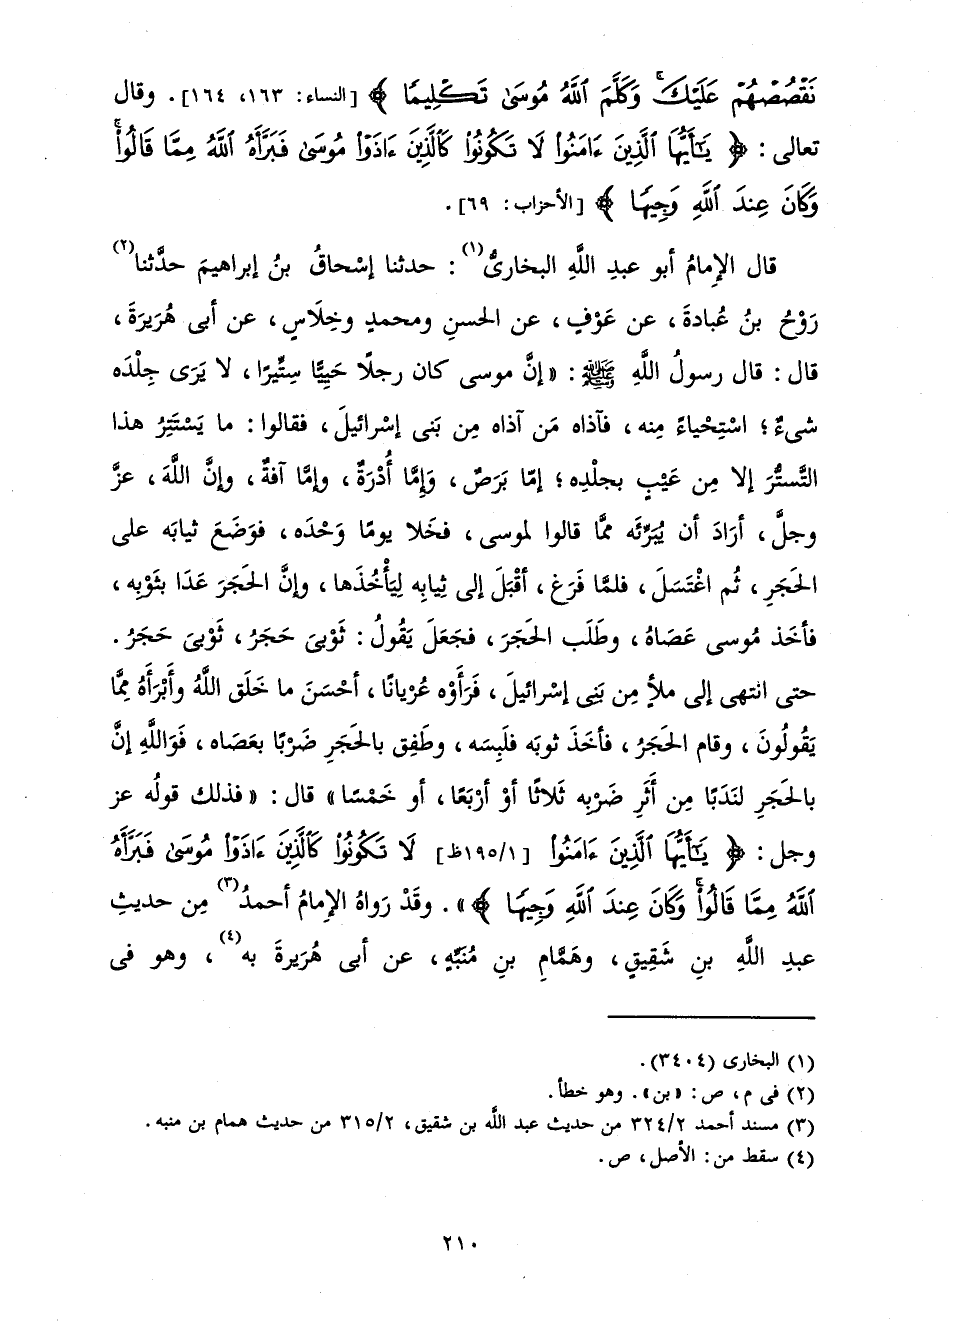 نَقْصُصْهُمْ عَلَيْكَ ۚ وَكَلَّمَ ٱللَّهُ مُوسَىٰ تَكْلِيمًا ﴾ [النساء: ١٦٣، ١٦٤]. وقال
تعالى: ﴿ يَٰٓأَيُّهَا ٱلَّذِينَ ءَامَنُوا۟ لَا تَكُونُوا۟ كَٱلَّذِينَ ءَاذَوْا۟ مُوسَىٰ فَبَرَّأَهُ ٱللَّهُ مِمَّا قَالُوا۟ ۚ
وَكَانَ عِندَ ٱللَّهِ وَجِيهًا ﴾ [الأحزاب: ٦٩].
قال الإمامُ أبو عبدِ اللَّهِ البخارىُّ(١): حدثنا إسْحاقُ بنُ إبراهيمَ حدَّثنا(٢)
رَوْحُ بنُ عُبادةَ، عن عَوْفٍ، عن الحسنِ ومحمدٍ وخِلَاسٍ، عن أبى هُرَيرَةَ،
قال: قال رسولُ اللَّهِ ﷺ: «إنَّ موسى كان رجلًا حَيِيًّا سِتِّيرًا، لا يَرَى جِلْدَه
شىءٌ؛ اسْتِحْياءً مِنه، فآذاه مَن آذاه مِن بَنى إسْرائيلَ، فقالوا: ما يَسْتَتِرُ هذا
التَّستُّرَ إلا مِن عَيْبٍ بجلْدِه؛ إمّا بَرَصٌ، وَإمَّا أُدْرَةٌ، وإمّا آفةٌ، وإنَّ اللَّهَ، عزَّ
وجلَّ، أرَادَ أن يُبَرِّئَه ممَّا قالوا لموسى، فخَلا يومًا وَحْدَه، فوَضَعَ ثيابَه على
الحَجَرِ، ثُم اغْتَسَلَ، فلمَّا فَرَغ، أقْبَلَ إلى ثِيابِه لِيَأْخُذَها، وإنَّ الحَجَرَ عَدَا بثَوْبِه،
فأخَذ مُوسى عَصَاهُ، وطَلَب الحَجَرَ، فجَعَلَ يَقُولُ: ثَوْبىَ حَجَرُ، ثَوْبىَ حَجَرُ.
حتى انتهى إلى ملأٍ مِن بَنِى إسْرائيلَ، فَرَأَوْه عُرْيانًا، أحْسَنَ ما خَلَق اللَّهُ وأَبْرَأَهُ مِمَّا
يَقُولُونَ، وقام الحَجَرُ، فأخَذَ ثوبَه فلَبِسَه، وطَفِق بالحَجَرِ ضَرْبًا بعَصَاه، فَوَاللَّهِ إنَّ
بالحَجَرِ لنَدَبًا مِن أَثَرِ ضَرْبِه ثَلاثًا أوْ أرْبَعًا، أو خَمْسًا» قال: «فذلك قولُه عز
وجل: ﴿ يَٰٓأَيُّهَا ٱلَّذِينَ ءَامَنُوا۟ [١/١٩٥ظ] لَا تَكُونُوا۟ كَٱلَّذِينَ ءَاذَوْا۟ مُوسَىٰ فَبَرَّأَهُ
ٱللَّهُ مِمَّا قَالُوا۟ ۚ وَكَانَ عِندَ ٱللَّهِ وَجِيهًا ﴾». وقَدْ رَواهُ الإمامُ أحمدُ(٣) مِن حديثِ
عبدِ اللَّهِ بنِ شَقِيقٍ، وهَمَّامِ بنِ مُنَبِّهٍ، عن أبى هُرَيرةَ به(٤)، وهو فى
(١) البخارى (٣٤٠٤).
(٢) فى م، ص: «بن». وهو خطأ.
(٣) مسند أحمد ٢/٣٢٤ من حديث عبد اللَّه بن شقيق، ٢/٣١٥ من حديث همام بن منبه.
(٤) سقط من: الأصل، ص.
٢١٠